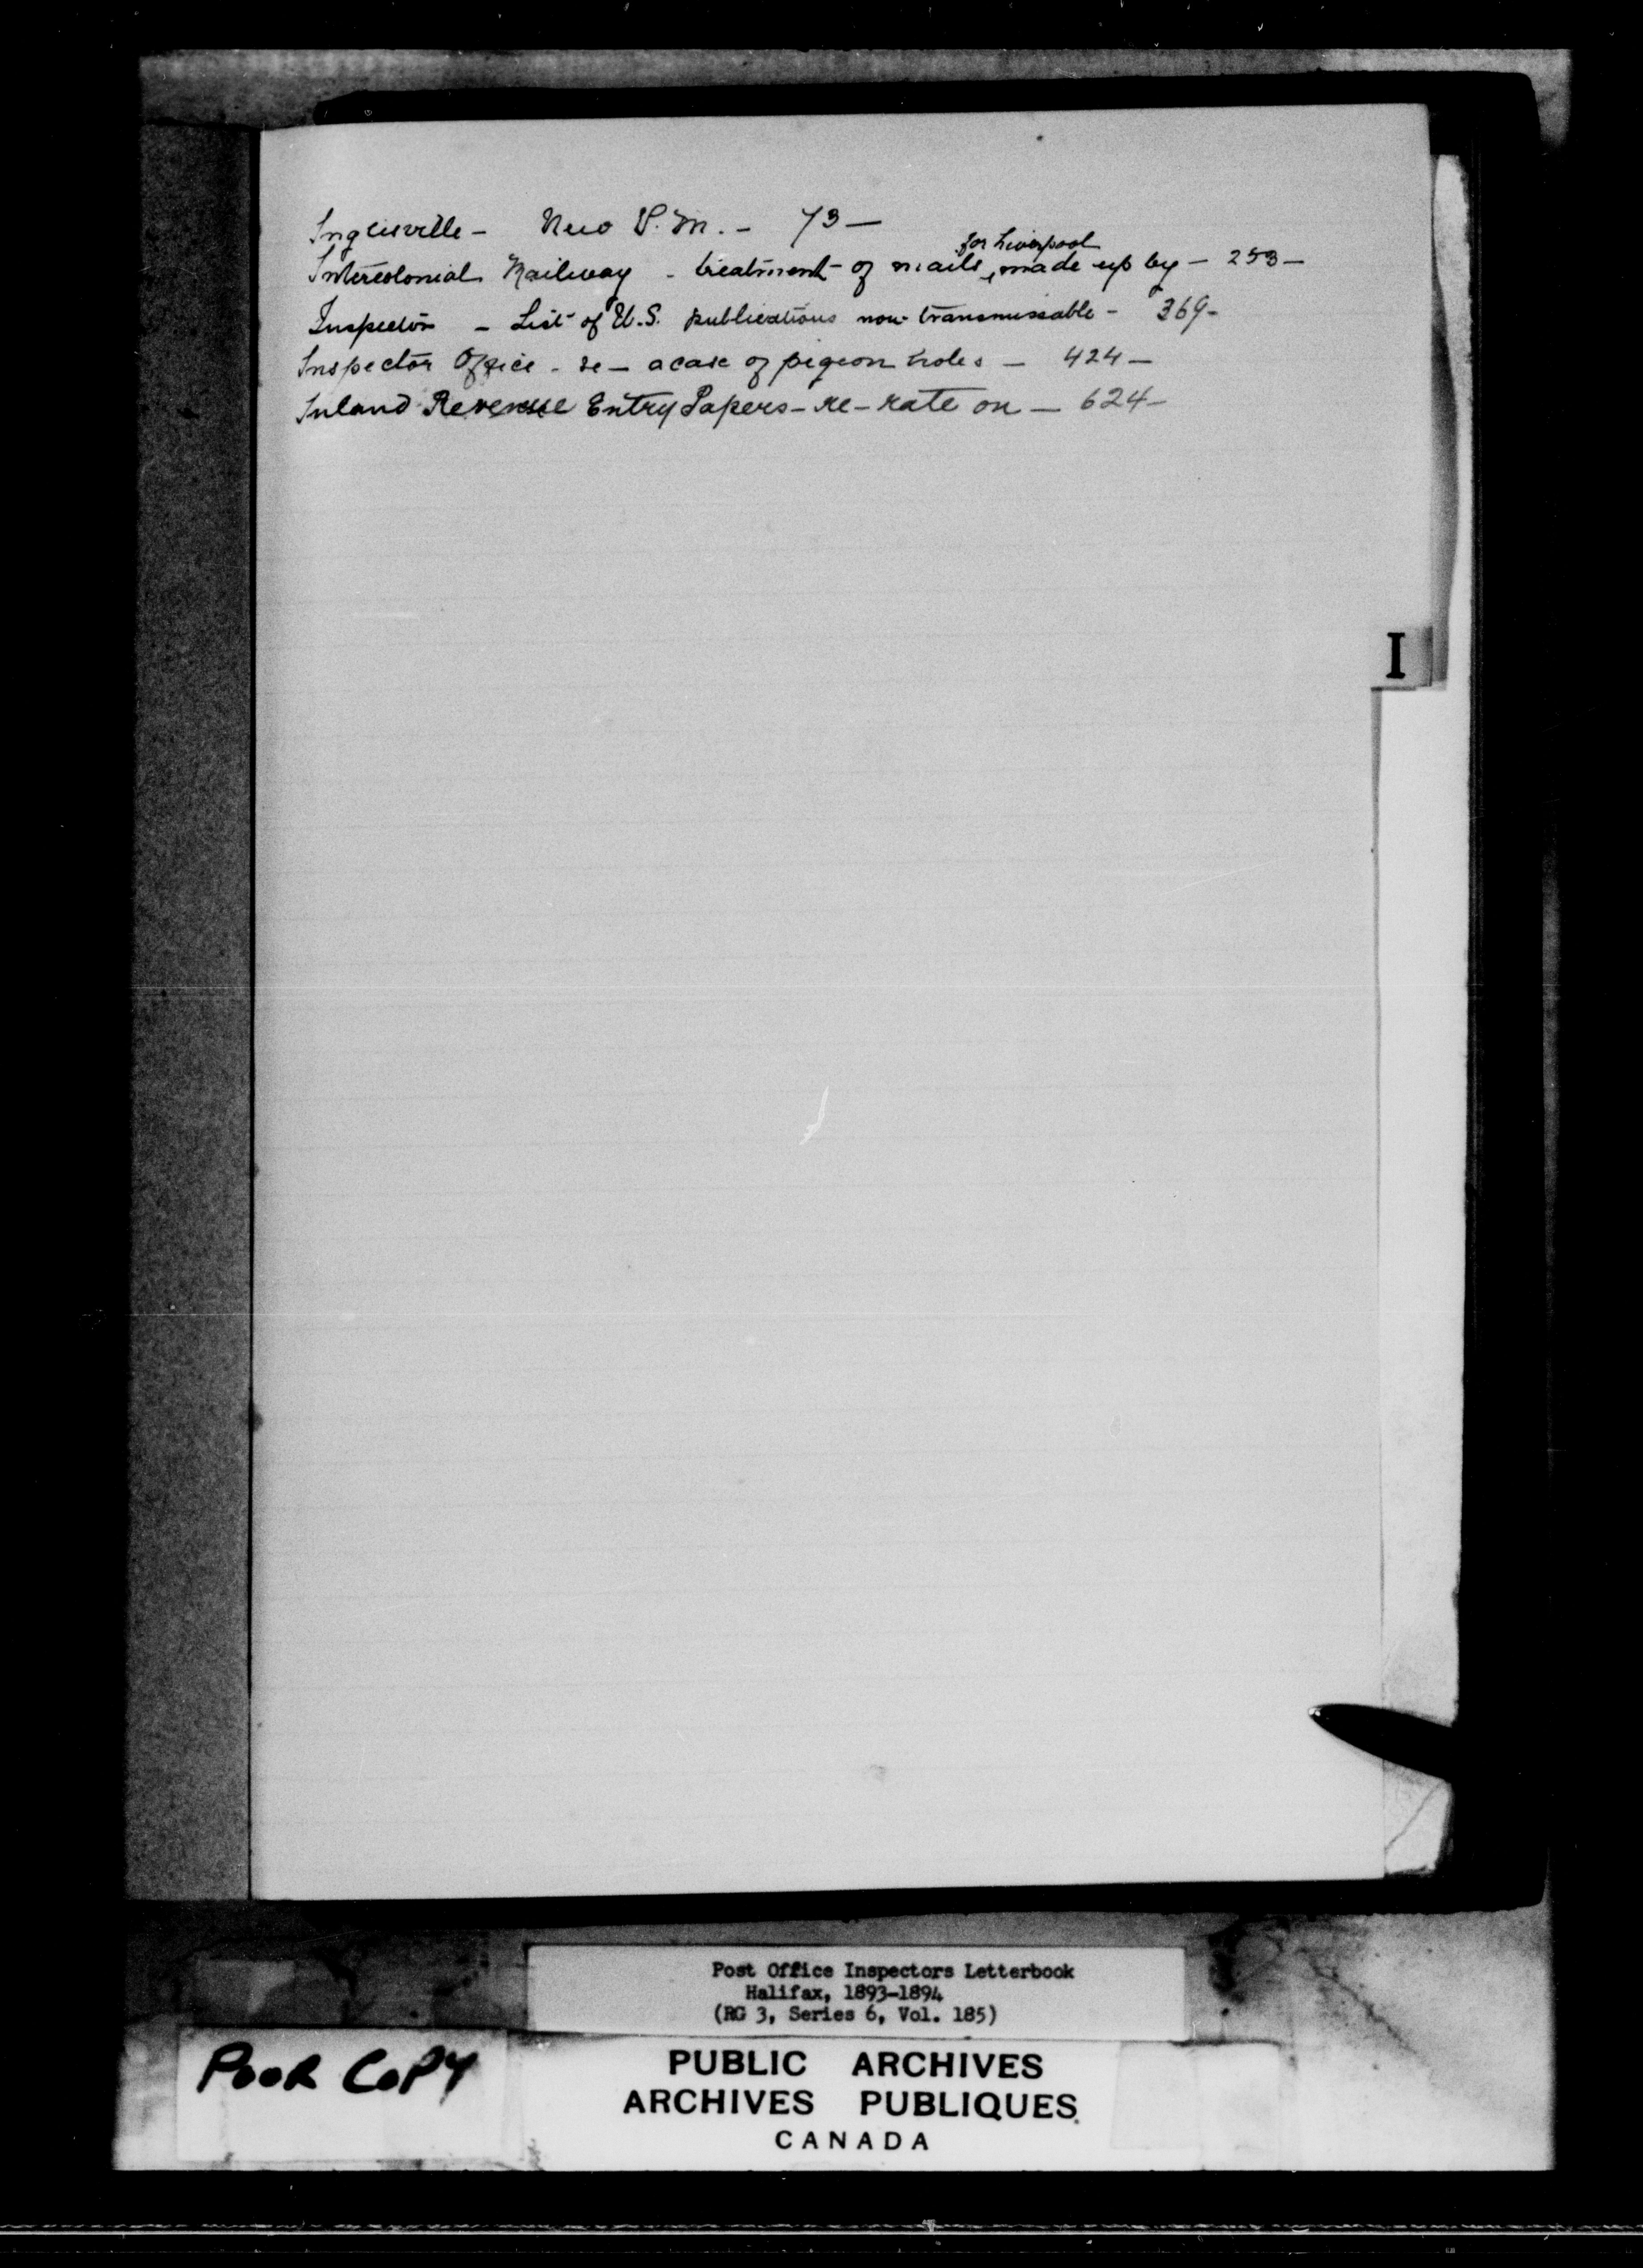 Inglisville - New P.M. - 73 -
Intercolonial Railway - treatment of mails for Liverpool made up by - 253 -
Inspector - List of U.S. publications non-transmissable - 369 -
Inspector Office - re - a case of pigeon holes - 424 -
Inland Revenue Entry Papers - re - rate on - 624 -
I
Post Office Inspectors Letterbook
Halifax, 1893-1894
(RG 3, Series 6, Vol. 185)
POOR COPY
PUBLIC ARCHIVES
ARCHIVES PUBLIQUES
CANADA